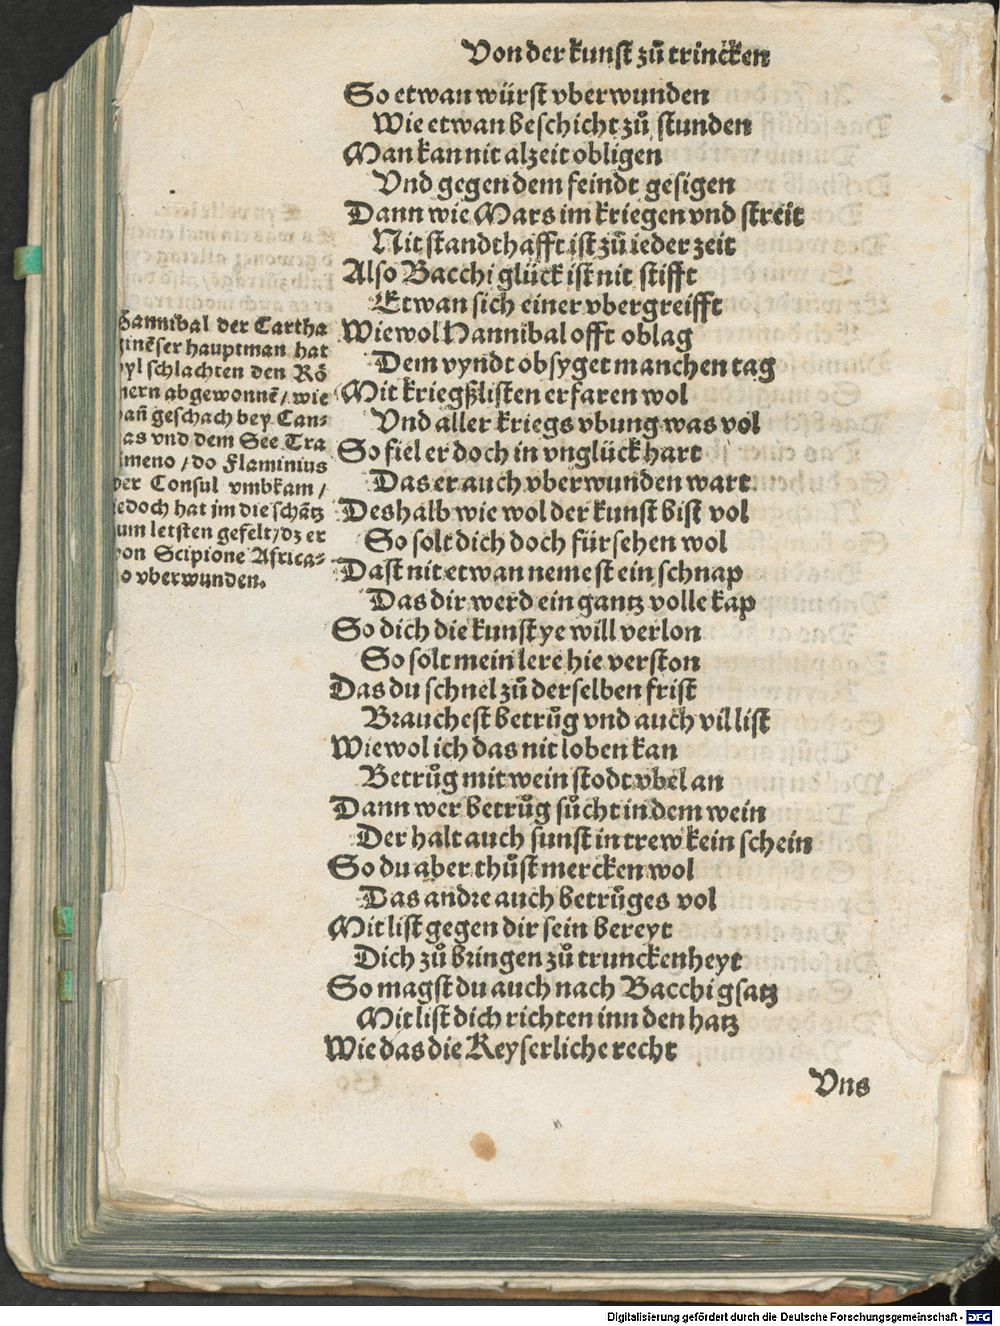 Von der kunst zů trincken
So etwan würst vberwunden
Wie etwan beschicht zů stunden
Man kan nit alzeit obligen
Vnd gegen dem feindt gesigen
Dann wie Mars im kriegen vnd streit
Nit standthafft ist zů ieder zeit
Also Bacchi glück ist nit stifft
Etwan sich einer vbergreifft
Wiewol Hannibal offt oblag
Dem vyndt obsyget manchen tag
Mit kriegßlisten erfaren wol
Vnd aller kriegs vbung was vol
So fiel er doch in vnglück hart
Das er auch vberwunden wart
Deshalb wie wol der kunst bist vol
So solt dich doch fürsehen wol
Dast nit etwan nemest ein schnap
Das dir werd ein gantz volle kap
So dich die kunst ye will verlon
So solt mein lere hie verston
Das du schnel zů derselben frist
Brauchest betrůg vnd auch vil list
Wiewol ich das nit loben kan
Betrůg mit wein stodt vbel an
Dann wer betrůg sůcht in dem wein
Der halt auch sunst in trew kein schein
So du aber thůst mercken wol
Das andre auch betrůges vol
Mit list gegen dir sein bereyt
Dich zů bringen zů trunckenheyt
So magst du auch nach Bacchi gsatz
Mit list dich richten inn den hatz
Wie das die Keyserliche recht
Vns
Hannibal der Cartha
ginẽser hauptman hat
vyl schlachten den Rö
mern abgewonnẽ / wie
dañ geschach bey Can-
nas vnd dem See Tra
simeno / do Flaminius
der Consul vmbkam /
jedoch hat im die schãtz
zum letsten gefelt / dz er
von Scipione Africa-
no vberwunden.
Digitalisierung gefördert durch die Deutsche Forschungsgemeinschaft - DFG